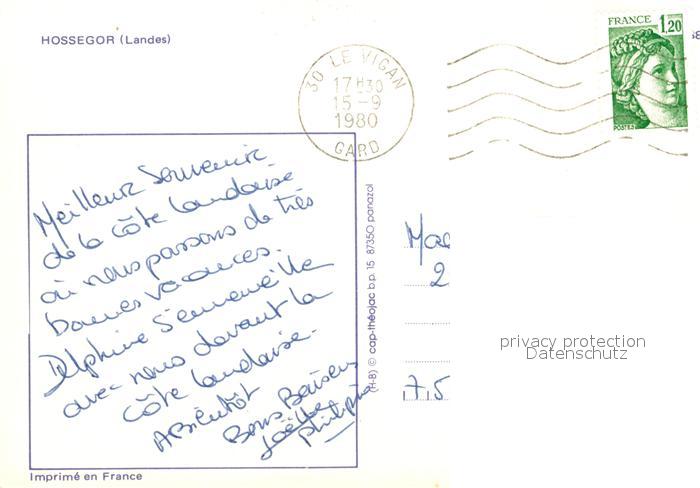 HOSSEGOR (Landes)
30 LE VIGAN
17H30
15-9
1980
GARD
FRANCE
1,20
POSTES
Meilleur Souvenir
de la côte landaise
où nous passons de très
bonnes vacances.
Delphine s'emerveille
avec nous devant la
côte landaise.
A Bientôt
Bons Baisers
Joëlle
Philippe
(H-B) © cap-théojac b.p. 15 87350 panazol
2
75
privacy protection
Datenschutz
Imprimé en France